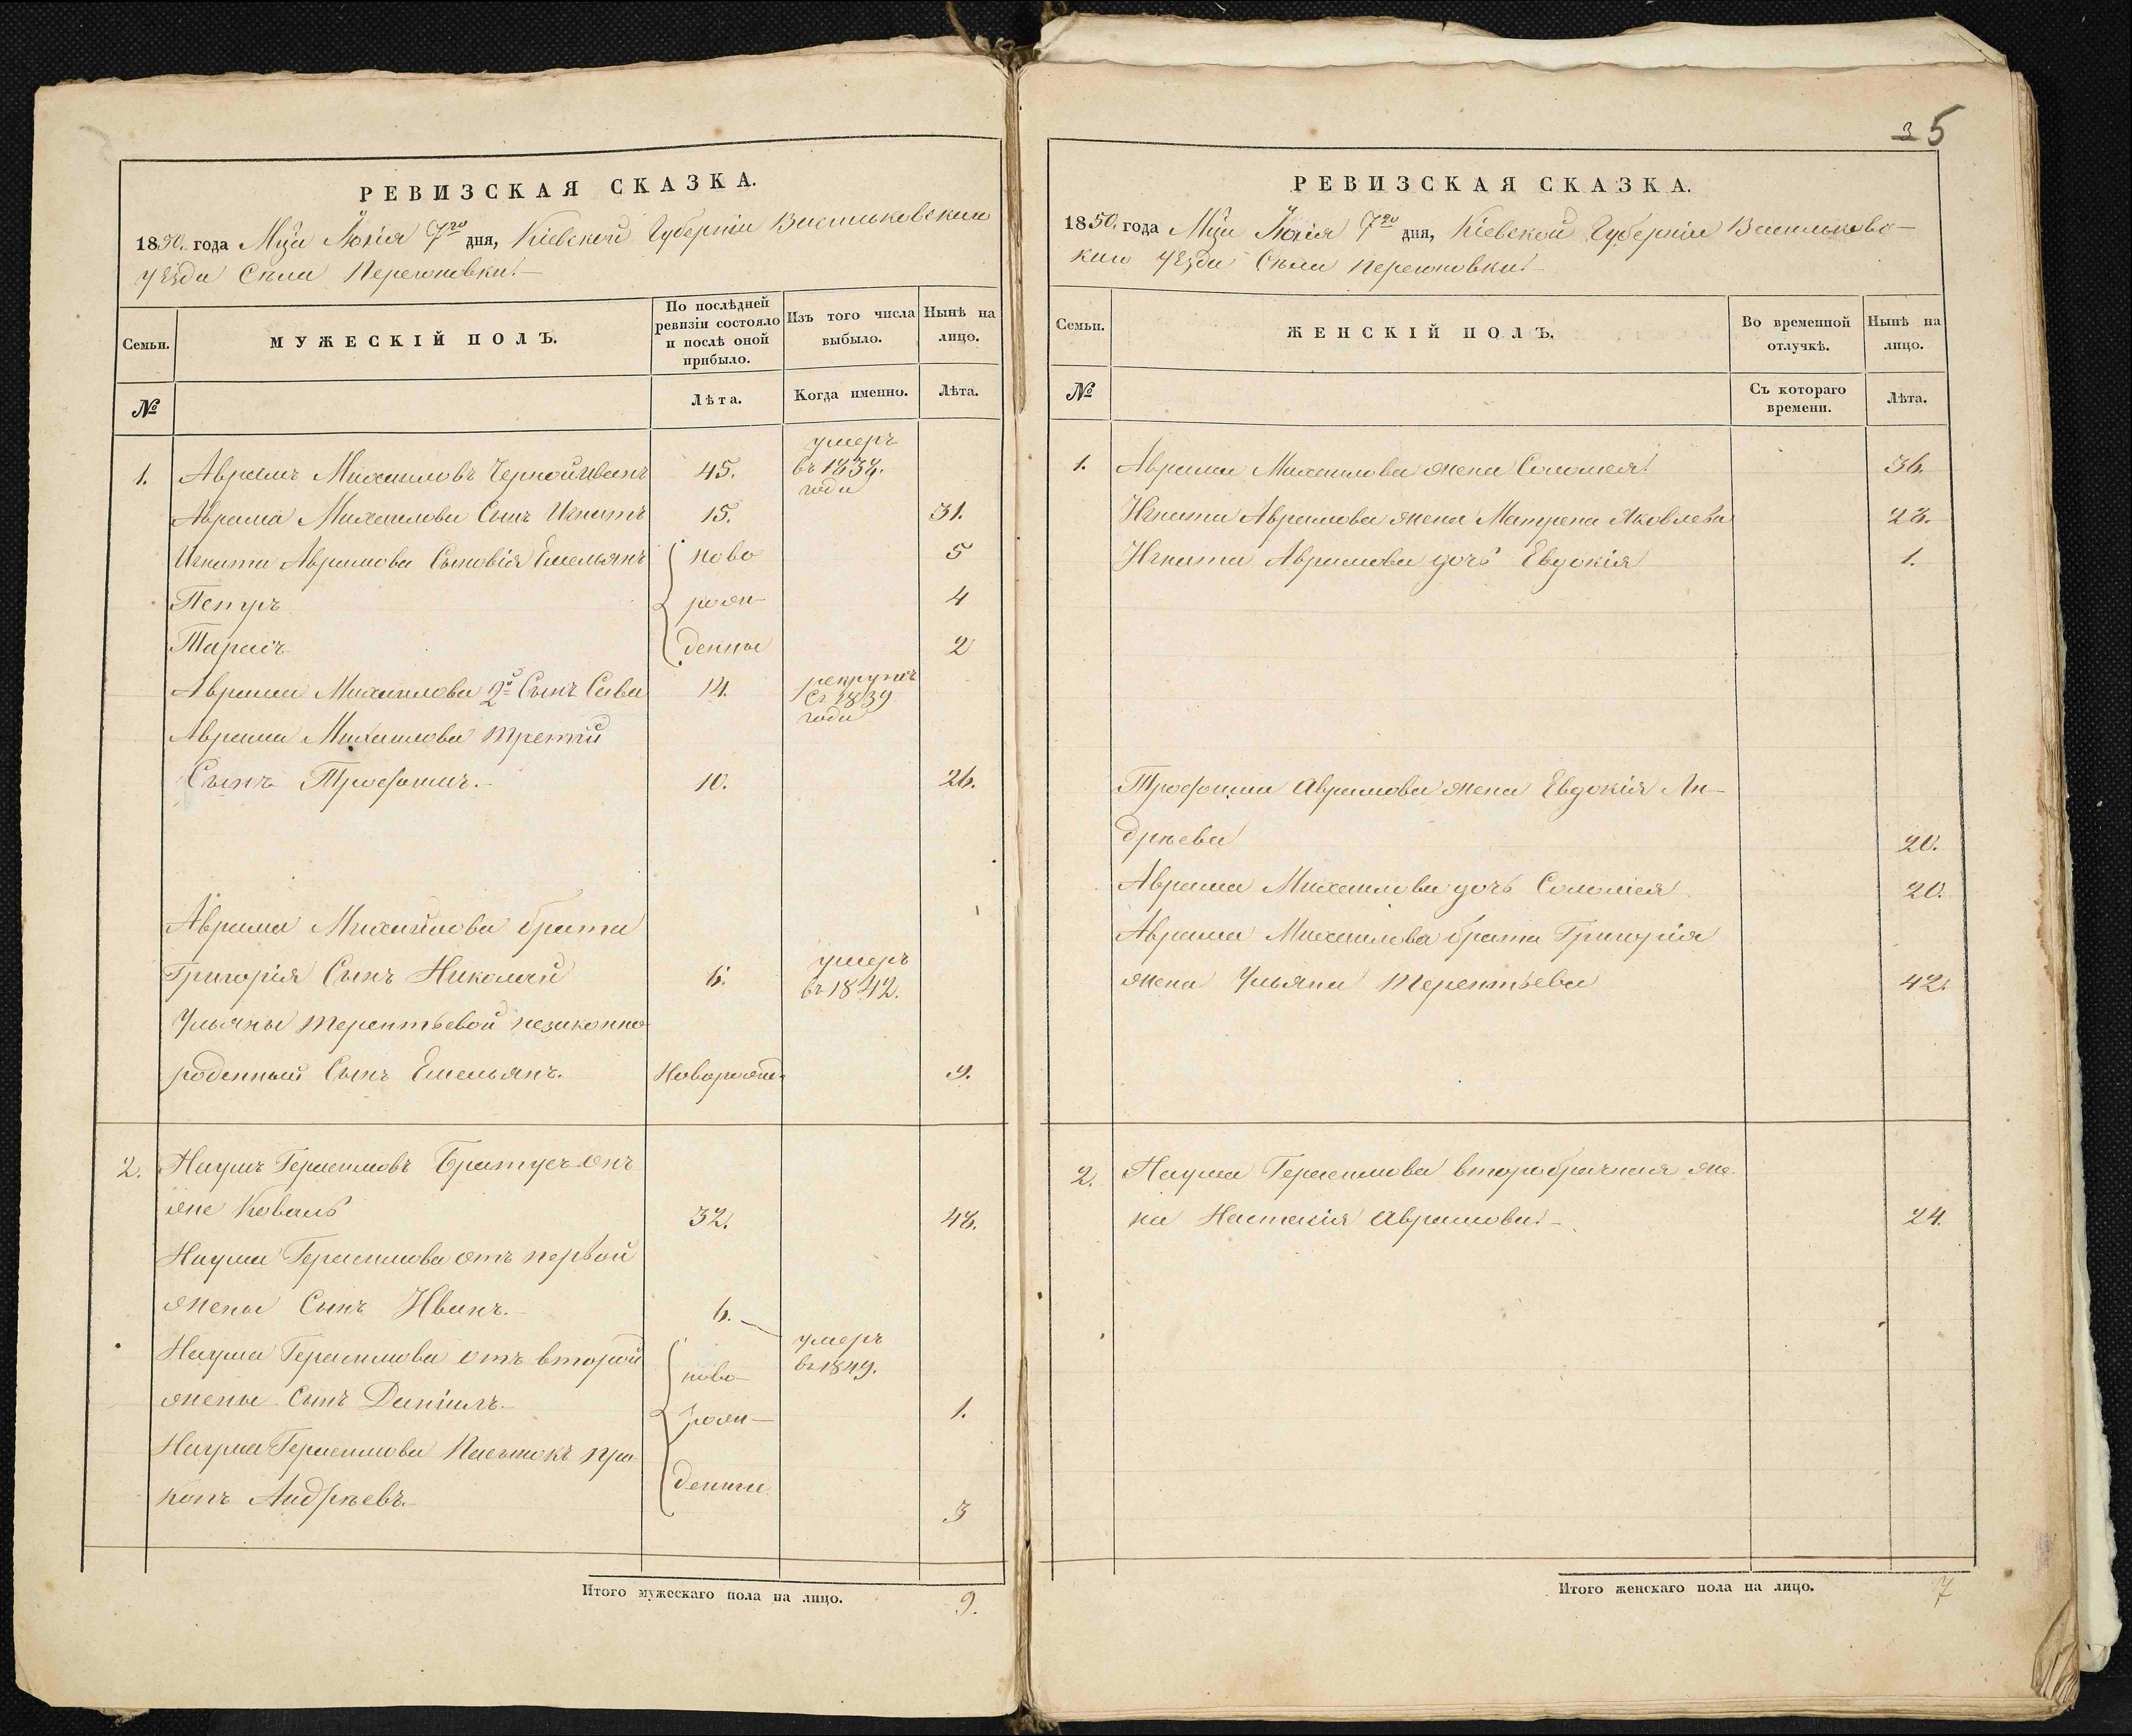 РЕВИЗСКАЯ СКАЗКА.
1850. года Мца Июля 7го дня, Кіевской Губерніи Васильковскаго
уѣзда Села Переюновки.
Семьи.
МУЖЕСКІЙ ПОЛЪ.
По послѣдней ревизіи состояло и послѣ оной прибыло.
Изъ того числа выбыло.
Нынѣ на лицо.
№
Лѣта.
Когда именно.
Лѣта.
умеръ
1. Аврамъ Михаиловъ 45. въ 1838.
года
Аврама Михаилова Сынъ Игнатъ 15. 31.
Игната Аврамова Сыновія Емельянъ ново 5
Петръ рож- 4
Тарасъ денные 2
Аврама Михаилова 2й Сынъ Сава 14. рекрутъ
съ 1839
года
Аврама Михаилова третій
Сынъ Трофимъ. 10. 26.
Аврама Михайлова брата
Григорія Сынъ Николай 6. умеръ
въ 1842.
Ульяны Терентьевой незаконно-
роденный Сынъ Емельянъ. Новорожд. 9.
2. Наумъ Герасимовъ Братусъ онъ
же Коваль 32. 48.
Наума Герасимова отъ первой
жены Сынъ Иванъ. 6. умеръ
въ 1849.
Наума Герасимова отъ второй ново-
жены Сынъ Даніилъ. рож- 1.
Наума Герасимова Пасынокъ Про-
копъ Андрѣевъ. денные 3
Итого мужескаго пола на лицо. 9.
3 5
РЕВИЗСКАЯ СКАЗКА.
1850. года Мца Июля 7го дня, Кіевской Губерніи Васильковс-
каго уѣзда Села Переюновки.
Семьи.
ЖЕНСКІЙ ПОЛЪ.
Во временной отлучкѣ.
Нынѣ на лицо.
№
Съ котораго времени.
Лѣта.
1. Аврама Михаилова жена Соломея 36.
Игната Аврамова жена Матрена Яковлева 28.
Игната Аврамова дочь Евдокія 1.
Трофима Аврамова жена Евдокія Ан-
дрѣева 20.
Аврама Михаилова дочь Соломея 20.
Аврама Михаилова брата Григорія
жена Ульяна Терентьева 42.
2. Наума Герасимова второбрачная же-
на Настасія Аврамова. 24.
Итого женскаго пола на лицо. 7